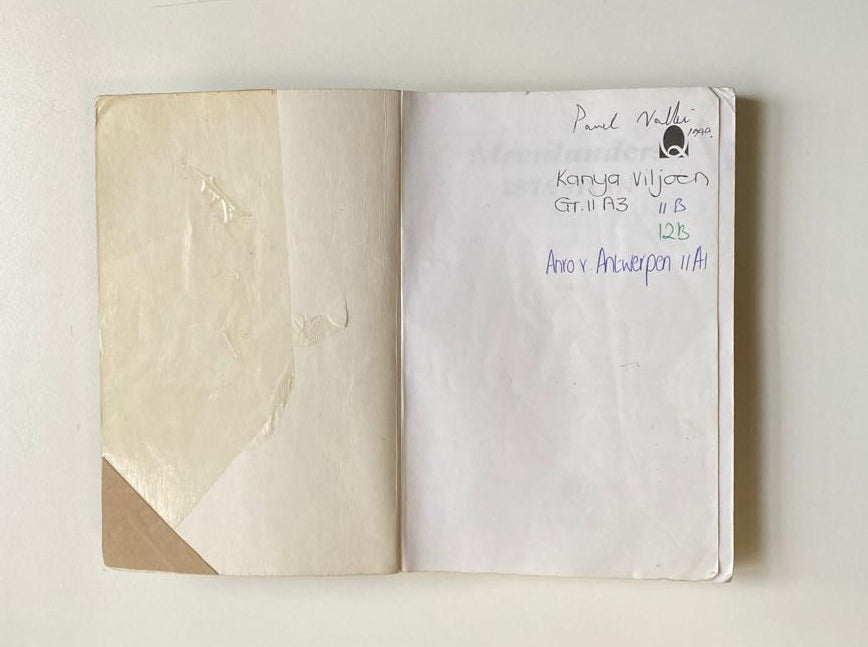 1999.
Kanya Viljoen
Gr.11 A3 11 B
12B
Anro v. Antwerpen 11A1